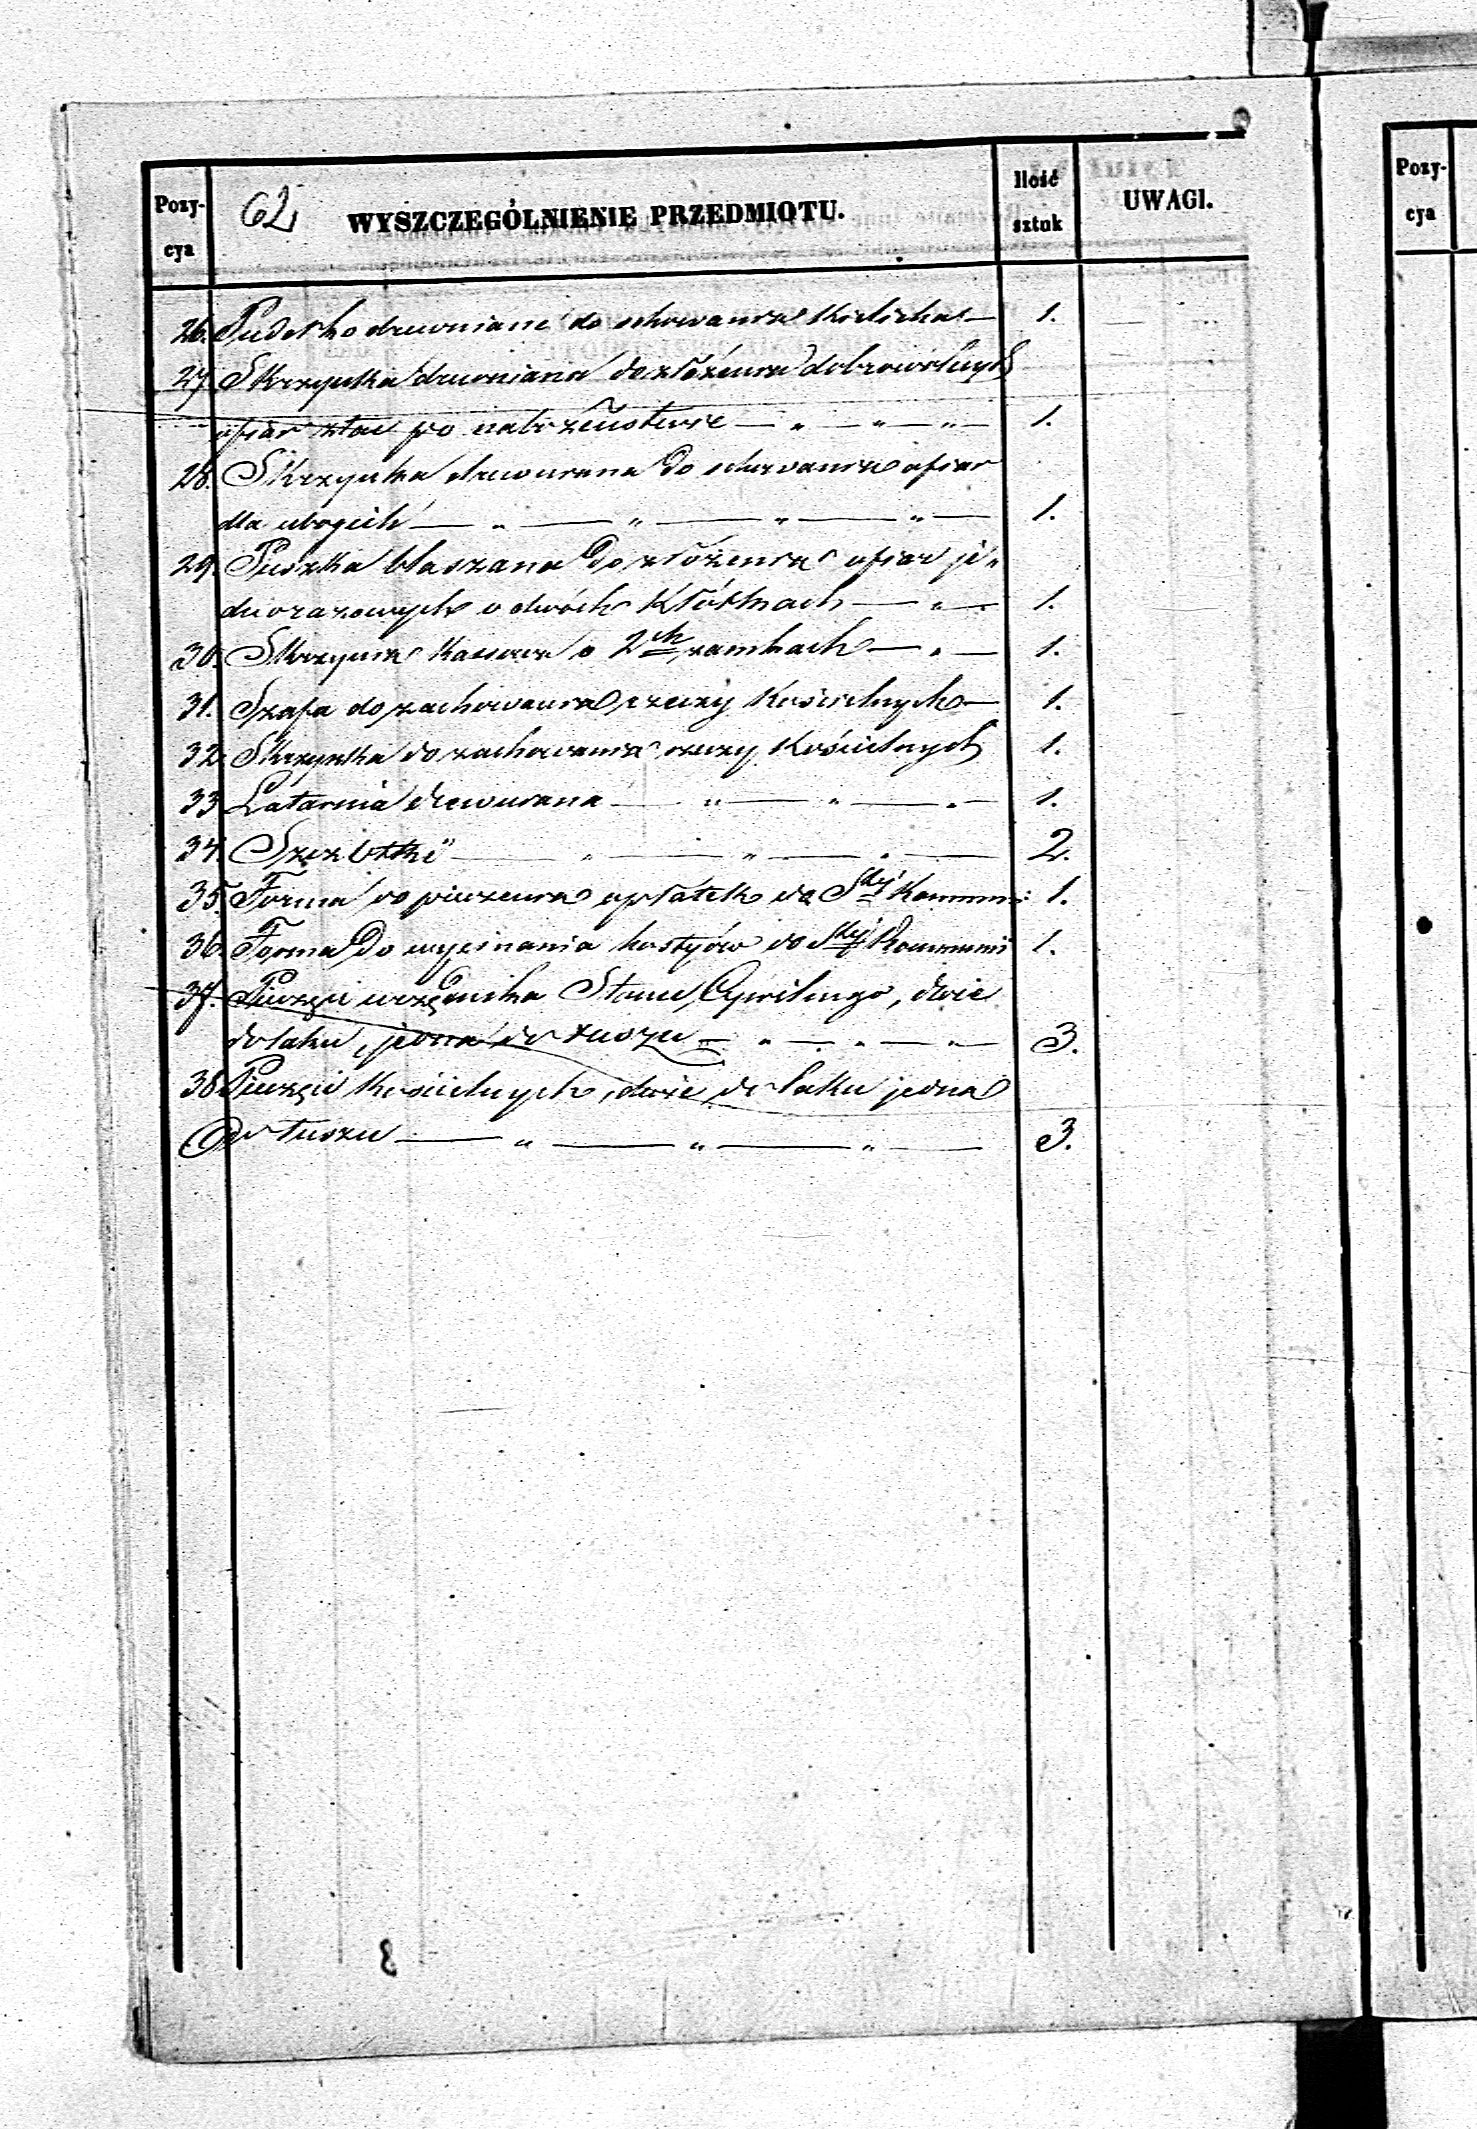 Pozy-
cya
62
WYSZCZEGÓLNIENIE PRZEDMIOTU.
Ilość
sztuk
UWAGI.
Pozy-
cya
26. Pudełko drewniane do schowania Kielicha — 1.
27. Skrzynka drewniana do złożenia dobrowolnych
ofiar po nabożeństwie — „ — „ — „ — 1.
28. Skrzynka drewniana do schowania ofiar
dla ubogich — „ — „ — „ — „ — 1.
29. Puszka blaszana do złożenia ofiar je„
dnorazowych o dwóch Kłótkach — „ — 1.
30. Skrzynia Kassowa o 2ch zamkach — „ — 1.
31. Szafa do zachowania rzeczy Kościelnych — 1.
32. Skrzynka do zachowania rzeczy Kościelnych 1.
33 Latarnia drewniana — „ — „ — „ — 1.
34. — „ — „ — „ — 2.
35. Forma do pieczenia opłatek do Stéj Kommuni 1.
36. Forma do wycinania hostyów do Stéj Kommunii 1.
37. Pieczęci urzędnika Stanu Cywilnego, dwie
do laku, jedna do tuszu — „ — „ — „ — 3.
38 Pieczęci Kościelnych, dwie do laku jedna
do tuszu — „ — „ — „ — 3.
8